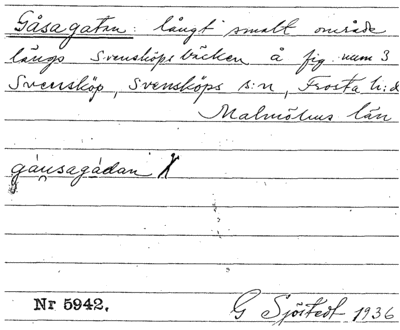 Gåsagatan: långt smalt område
längs Svensköps bäcken å fig. num 3
Svensköp, Svensköps s:n, Frosta h:d
Malmöhus län
gåusagádan
Nr 5942.
G Sjöstedt 1936